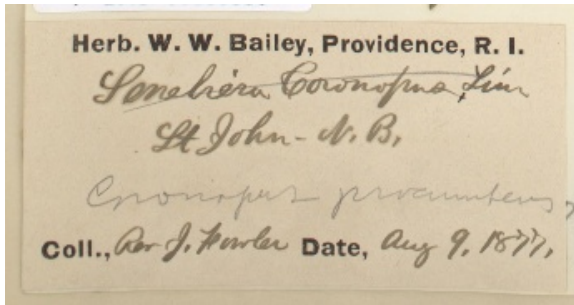 Herb. W. W. Bailey, Providence, R. I.
Senebiera Coronopus, Linn
St John - N. B.
Coronopus procumbens,
Coll., Rev J. Fowler Date, Aug 9, 1877.